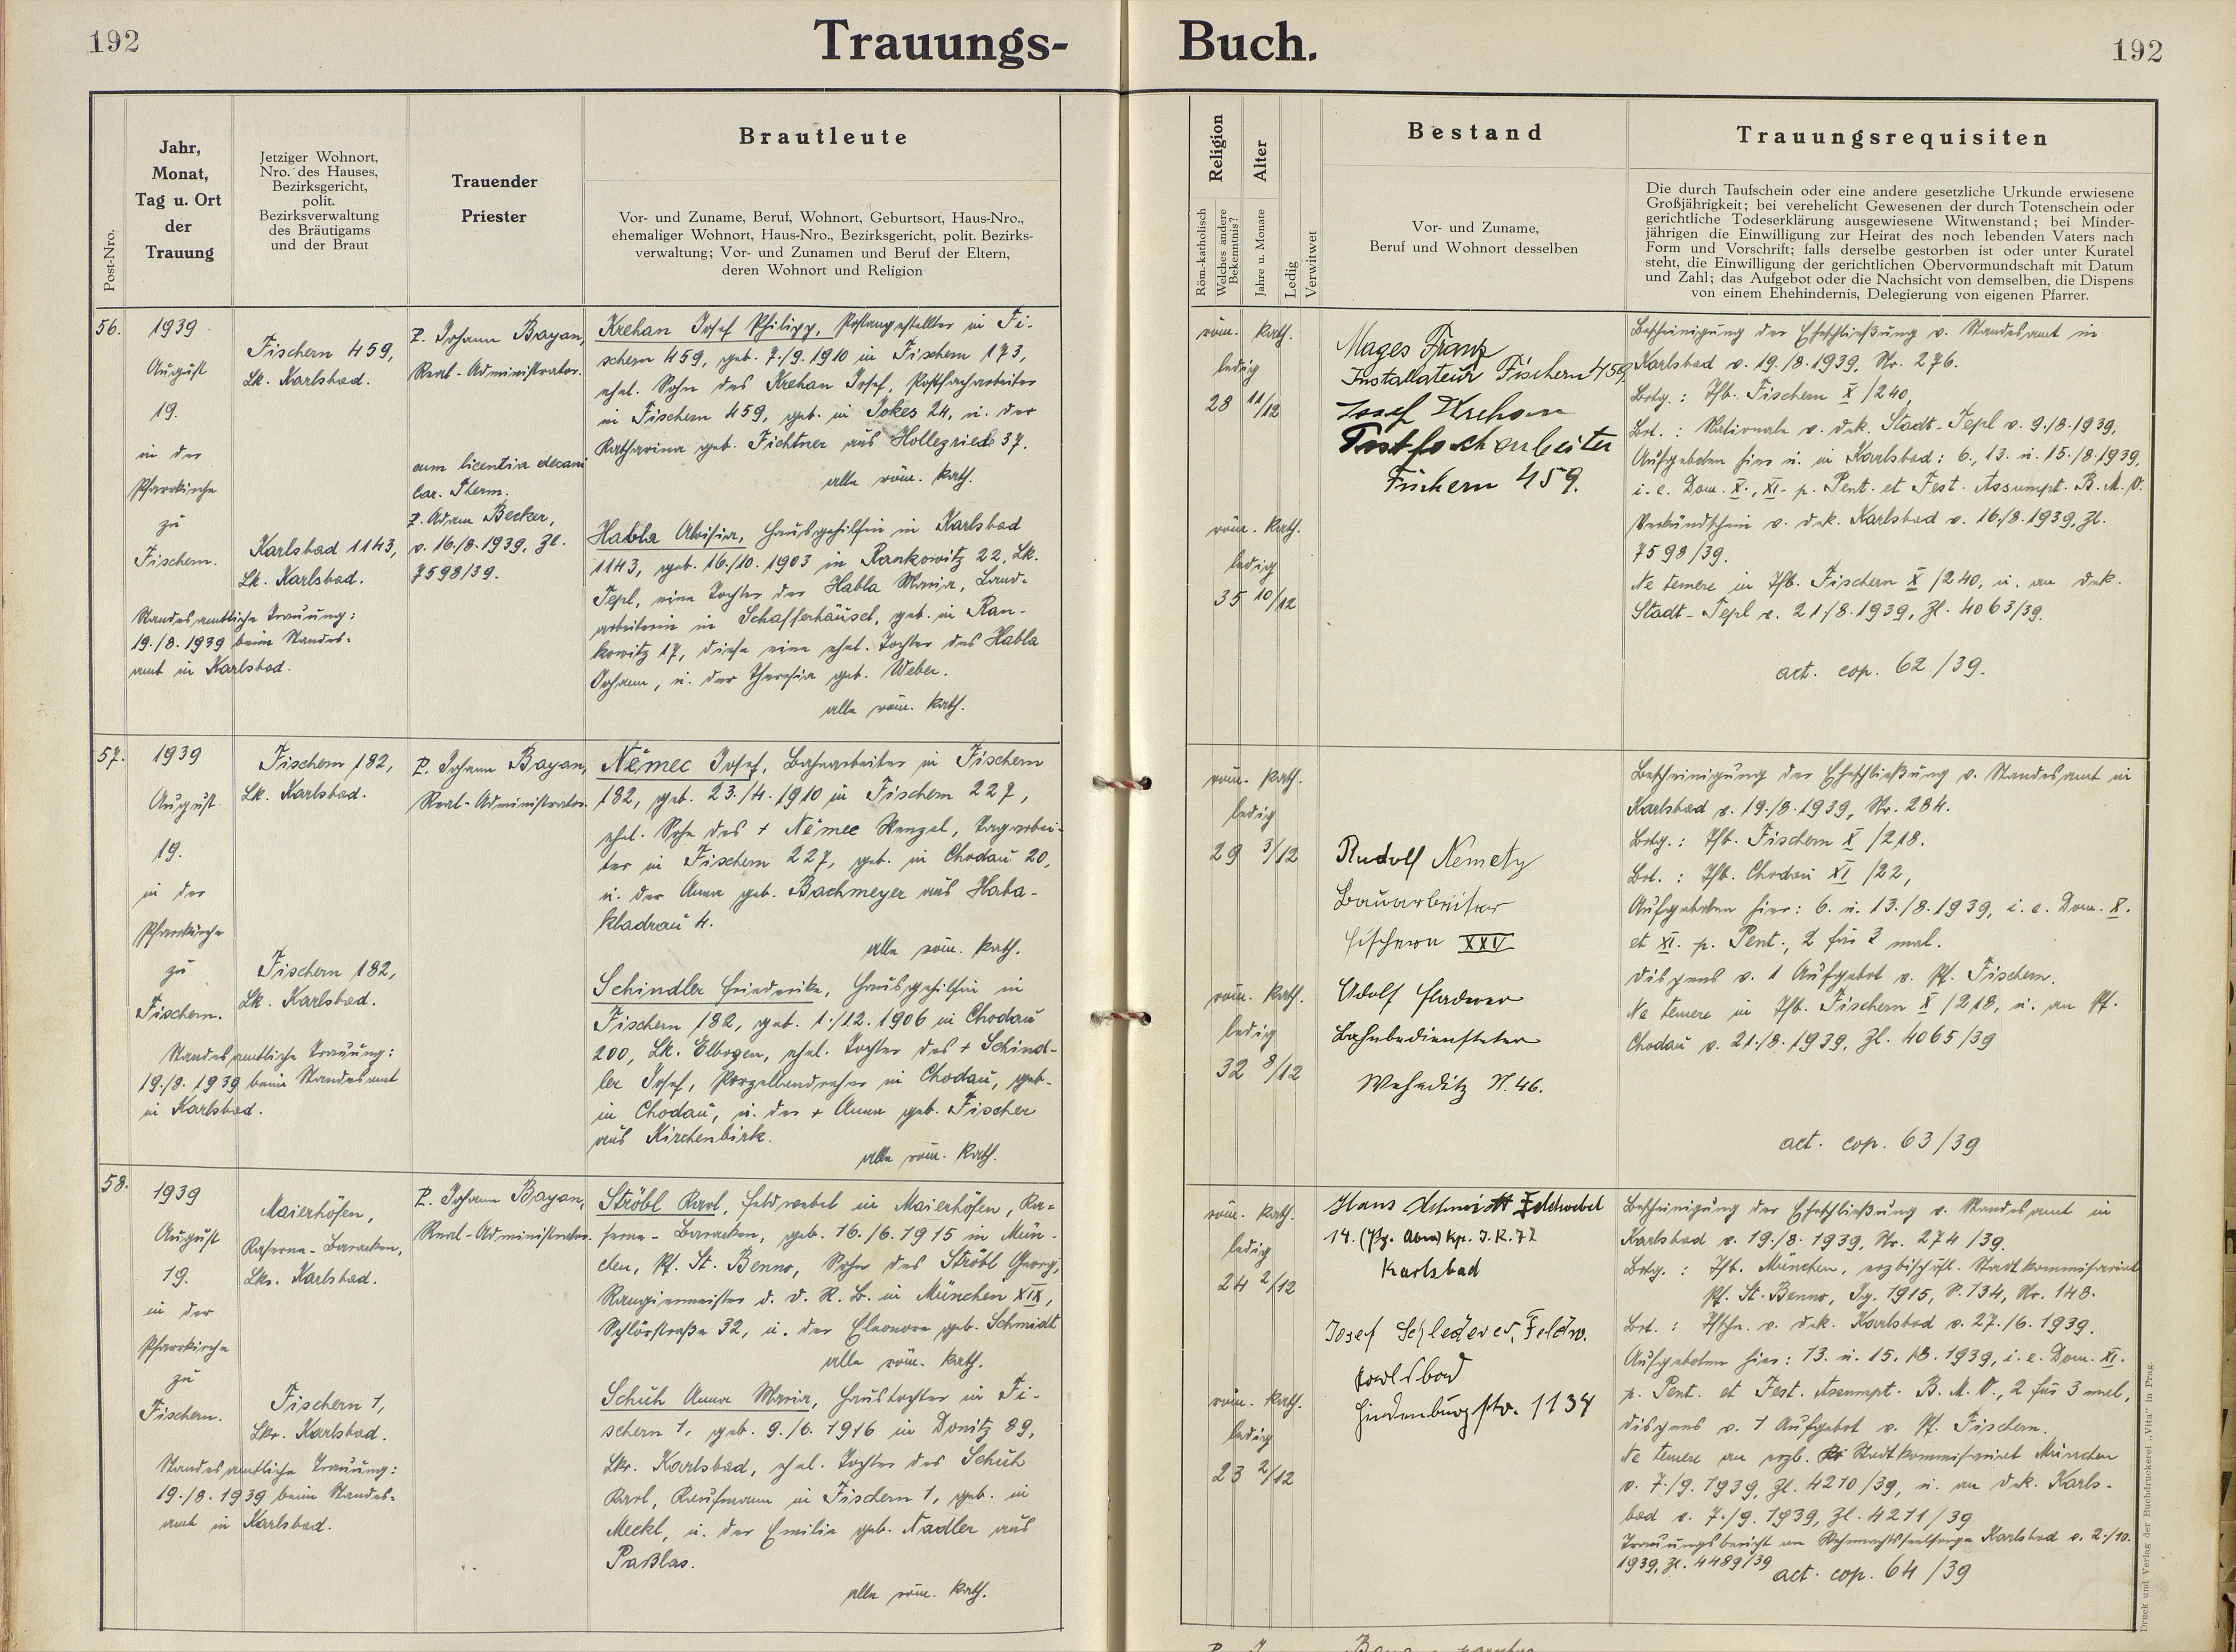 192
Trauungs-
Buch.
192
Post-Nro.
Jahr,
Monat,
Tag u. Ort
der
Trauung
Jetziger Wohnort,
Nro. des Hauses,
Bezirksgericht,
polit.
Bezirksverwaltung
des Bräutigams
und der Braut
Trauender
Priester
Brautleute
Vor- und Zuname, Beruf, Wohnort, Geburtsort, Haus-Nro.,
ehemaliger Wohnort, Haus-Nro., Bezirksgericht, polit. Bezirks-
verwaltung; Vor- und Zunamen und Beruf der Eltern,
deren Wohnort und Religion
Religion
Röm.-katholisch
Welches andere
Bekenntnis?
Alter
Jahre u. Monate
Ledig
Verwitwet
Bestand
Vor- und Zuname,
Beruf und Wohnort desselben
Trauungsrequisiten
Die durch Taufschein oder eine andere gesetzliche Urkunde erwiesene
Großjährigkeit; bei verehelicht Gewesenen der durch Totenschein oder
gerichtliche Todeserklärung ausgewiesene Witwenstand; bei Minder-
jährigen die Einwilligung zur Heirat des noch lebenden Vaters nach
Form und Vorschrift; falls derselbe gestorben ist oder unter Kuratel
steht, die Einwilligung der gerichtlichen Obervormundschaft mit Datum
und Zahl; das Aufgebot oder die Nachsicht von demselben, die Dispens
von einem Ehehindernis, Delegierung von eigenen Pfarrer.
56.
1939
August
19.
in der
Pfarrkirche
zu
Fischern.
Standesamtliche Trauung:
19./8. 1939 beim Standes-
amt in Karlsbad.
Fischern 459,
Lk. Karlsbad.
Karlsbad 1143,
Lk. Karlsbad.
P. Johann Bayan,
Real-Administrator.
cum licentia decani
Car. Therm.
P. Adam Becker,
v. 16./8. 1939, Zl.
7598/39.
Krehan Josef Philipp, Postangestellter in Fi-
schern 459, geb. 7./9. 1910 in Fischern 173,
ehel. Sohn des Krehan Josef, Postfacharbeiter
in Fischern 459, geb. in Jokes 24, u. der
Katharina geb. Fichtner aus Hollegrieds 37.
alle röm. kath.
Habla Aloisia, Hausgehilfin in Karlsbad
1143, geb. 16./10. 1903 in Rankowitz 22, Lk.
Tepl, eine Tochter der Habla Maria, Land-
arbeiterin in Schafferhäusel, geb. in Ran-
kowitz 17, diese eine ehel. Tochter des Habla
Johann, u. der Theresia geb. Weber.
alle röm. kath.
röm. kath.
ledig
28 11/12
röm. kath.
ledig
35 10/12
Mages Franz
Installateur Fischern 459
Josef Krehan
Postfacharbeiter
Fischern 459.
Bescheinigung der Eheschließung v. Standesamt in
Karlsbad v. 19./8. 1939, Nr. 276.
Brtg.: Tfb. Fischern X /240,
Brt.: Nationale v. dek. Stadt-Tepl v. 9./8. 1939,
Aufgeboten hier u. in Karlsbad: 6., 13. u. 15./8. 1939,
i. e. Dom. X., XI. p. Pent. et Fest. Assumpt. B. M. V.
Verkündschein v. dek. Karlsbad v. 16./8. 1939, Zl.
7598/39.
Ne temere in Tfb. Fischern X /240, u. an dek.
Stadt-Tepl v. 21./8. 1939, Zl. 4063/39.
act. cop. 62./39.
57.
1939
August
19.
in der
Pfarrkirche
zu
Fischern.
Standesamtliche Trauung:
19./8. 1939 beim Standesamt
in Karlsbad.
Fischern 182,
Lk. Karlsbad.
Fischern 182,
Lk. Karlsbad.
P. Johann Bayan,
Real-Administrator.
Němec Josef, Bahnarbeiter in Fischern
182, geb. 23./4. 1910 in Fischern 227,
ehel. Sohn des + Němec Wenzel, Tagarbei-
ter in Fischern 227, geb. in Chodau 20,
u. der Anna geb. Bachmeyer aus Haba-
kladrau 4.
alle röm. kath.
Schindler Friederike, Hausgehilfin in
Fischern 182, geb. 1./12. 1906 in Chodau
200, Lk. Elbogen, ehel. Tochter des + Schind-
ler Josef, Porzellandreher in Chodau, geb.
in Chodau, u. der + Anna geb. Fischer
aus Kirchenbirk.
alle röm. kath.
röm. kath.
ledig
29 3/12
röm. kath.
ledig
32 8/12
Rudolf Nemetz
Bauarbeiter
Fischern XXV
Adolf
Bahnbediensteter
Wehediz N. 46.
Bescheinigung der Eheschließung v. Standesamt in
Karlsbad v. 19./8. 1939, Nr. 284.
Brtg.: Tfb. Fischern X /218.
Brt.: Tfb. Chodau XI /22,
Aufgeboten hier: 6. u. 13./8. 1939, i. e. Dom. X.
et XI. p. Pent., 2 für 3 mal.
Dispens v. 1 Aufgebot v. Pf. Fischern.
Ne temere in Tfb. Fischern X /218, u. an Pf.
Chodau v. 21./8. 1939, Zl. 4065/39
act. cop. 63/39
58.
1939
August
19.
in der
Pfarrkirche
zu
Fischern.
Standesamtliche Trauung:
19./8. 1939 beim Standes-
amt in Karlsbad.
Maierhöfen,
Kaserne-Baracken,
Lkr. Karlsbad.
Fischern 1,
Lkr. Karlsbad.
P. Johann Bayan,
Real-Administrator.
Ströbl Karl, Feldwebel in Maierhöfen, Ka-
serne-Baracken, geb. 16./6. 1915 in Mün-
chen, Pf. St. Benno, Sohn des Ströbl Georg,
Rangiermeister d. d. R. B. in München XIX,
Schlörstraße 32, u. der Eleonore geb. Schmidt
alle röm. kath.
Schuh Anna Maria, Haustochter in Fi-
schern 1, geb. 9./6. 1916 in Donitz 89,
Lkr. Karlsbad, ehel. Tochter des Schuh
Karl, Kaufmann in Fischern 1, geb. in
Meckl, u. der Emilie geb. Nadler aus
Paßlas.
alle röm. kath.
röm. kath.
ledig
24 2/12
röm. kath.
ledig
23 2/12
Hans Schmidt Feldwebel
14. (Pz. Abw) Kp. I.R. 72
Karlsbad
Josef Schlederer, Feldw.
Karlsbad
Hindenburgstr. 1134
Bescheinigung der Eheschließung v. Standesamt in
Karlsbad v. 19./8. 1939, Nr. 274/39.
Brtg.: Tfb. München, erzbischöfl. Stadtkommissariat
Pf. St. Benno, Jg. 1915, S. 134, Nr. 148.
Brt.: Tfschn. v. dek. Karlsbad v. 27./6. 1939.
Aufgeboten hier: 13. u. 15./8. 1939, i. e. Dom. XI.
p. Pent. et Fest. Assumpt. B. M. V., 2 für 3 mal,
Dispens v. 1 Aufgebot v. Pf. Fischern.
Ne temere an erzb. Stadtkommissariat München
v. 7./9. 1939, Zl. 4210/39, u. an dek. Karls-
bad v. 7./9. 1939, Zl. 4211/39
Trauungsbericht an Wehrmachtseelsorge Karlsbad v. 2./10.
1939, Zl. 4489/39
act. cop. 64/39
Druck und Verlag der Buchdruckerei „Vita" in Prag.